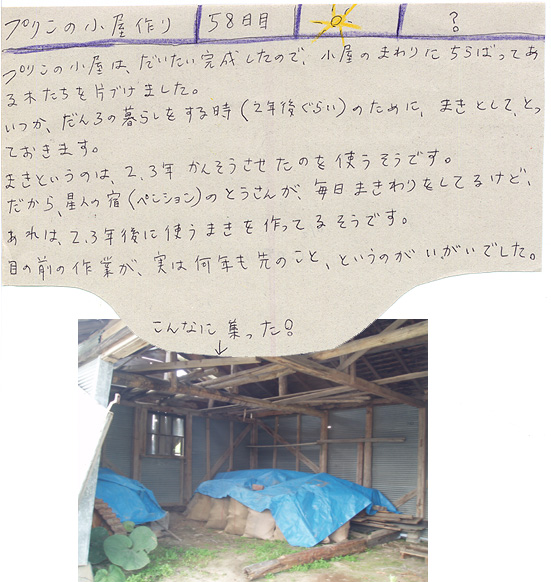 プリンの小屋作り 58日目 ?
プリンの小屋は、だいたい完成したので、小屋のまわりにちらばってあ
る木たちを片づけました。
いつか、だんろの暮らしをする時(2年後ぐらい)のために、まきとして、とっ
ておきます。
まきというのは、2,3年かんそうさせたのを使うそうです。
だから、星人の宿(ペンション)のとうさんが、毎日まきわりをしてるけど、
あれは、2,3年後に使うまきを作ってるそうです。
目の前の作業が、実は何年も先のこと、というのがいがいでした。
こんなに集った!